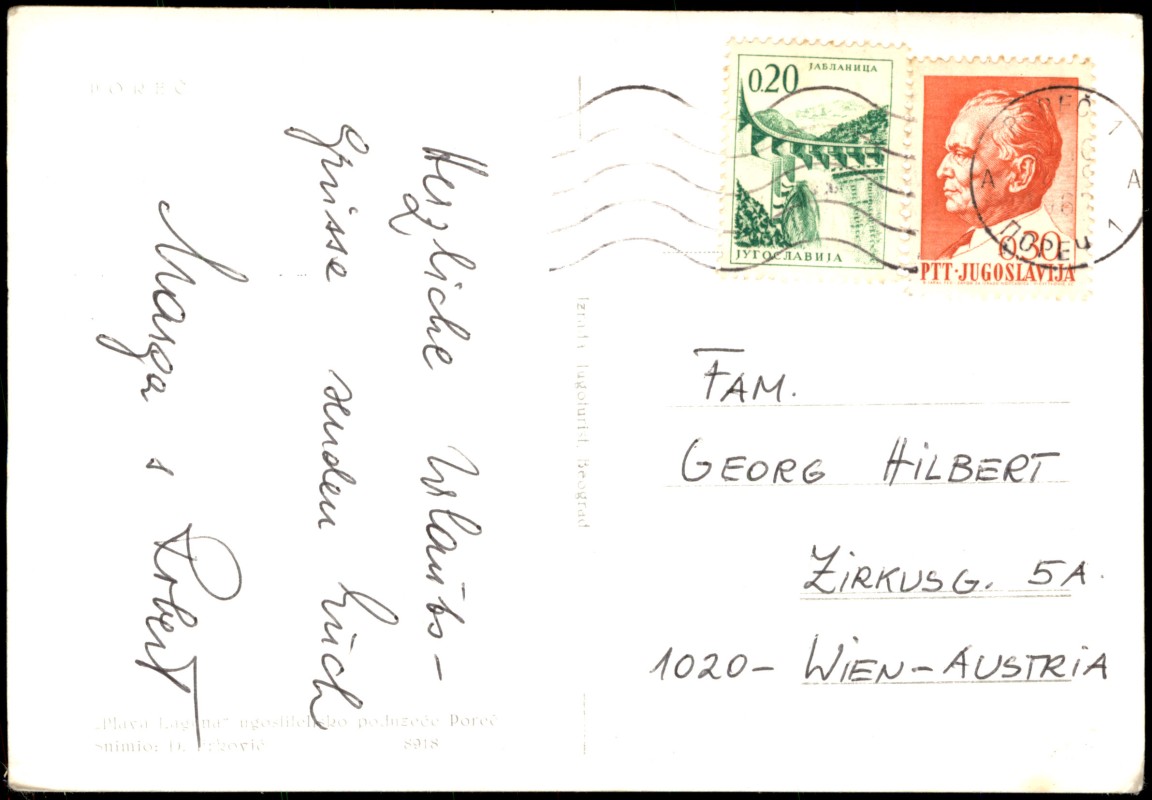 POREČ
Herzliche Urlaubs-
Grüsse senden Euch
Marga & Robert
„Plava Laguna“ ugostiteljsko poduzeće Poreč
Snimio:
8918
Izrada: Jugoturist, Beograd
0.20
ЈАБЛАНИЦА
ЈУГОСЛАВИЈА
0.30
PTT·JUGOSLAVIJA
POREČ 1
A A
ПОРЕЧ 1
FAM.
GEORG HILBERT
ZIRKUSG. 5A.
1020- WIEN-AUSTRIA